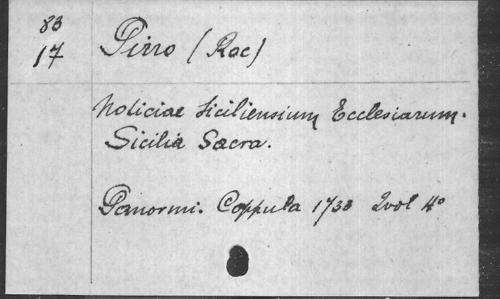 83
17 Pirro (Roc)
Noticiae Siciliensium Ecclesiarum.
Sicilia Sacra.
Panormi. Coppula 1733 2vol 4º